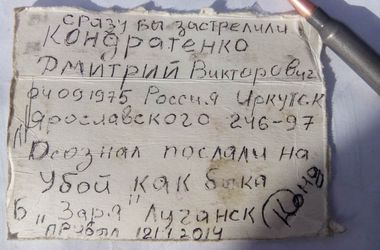 сразу вы застрелили
Кондратенко
Дмитрий Викторович
04 09 1975 Россия Иркутск
Ярославского 246-97
Осознал послали на
Убой как быка
Б "Заря" Луганск
прибыл 12.7.2014